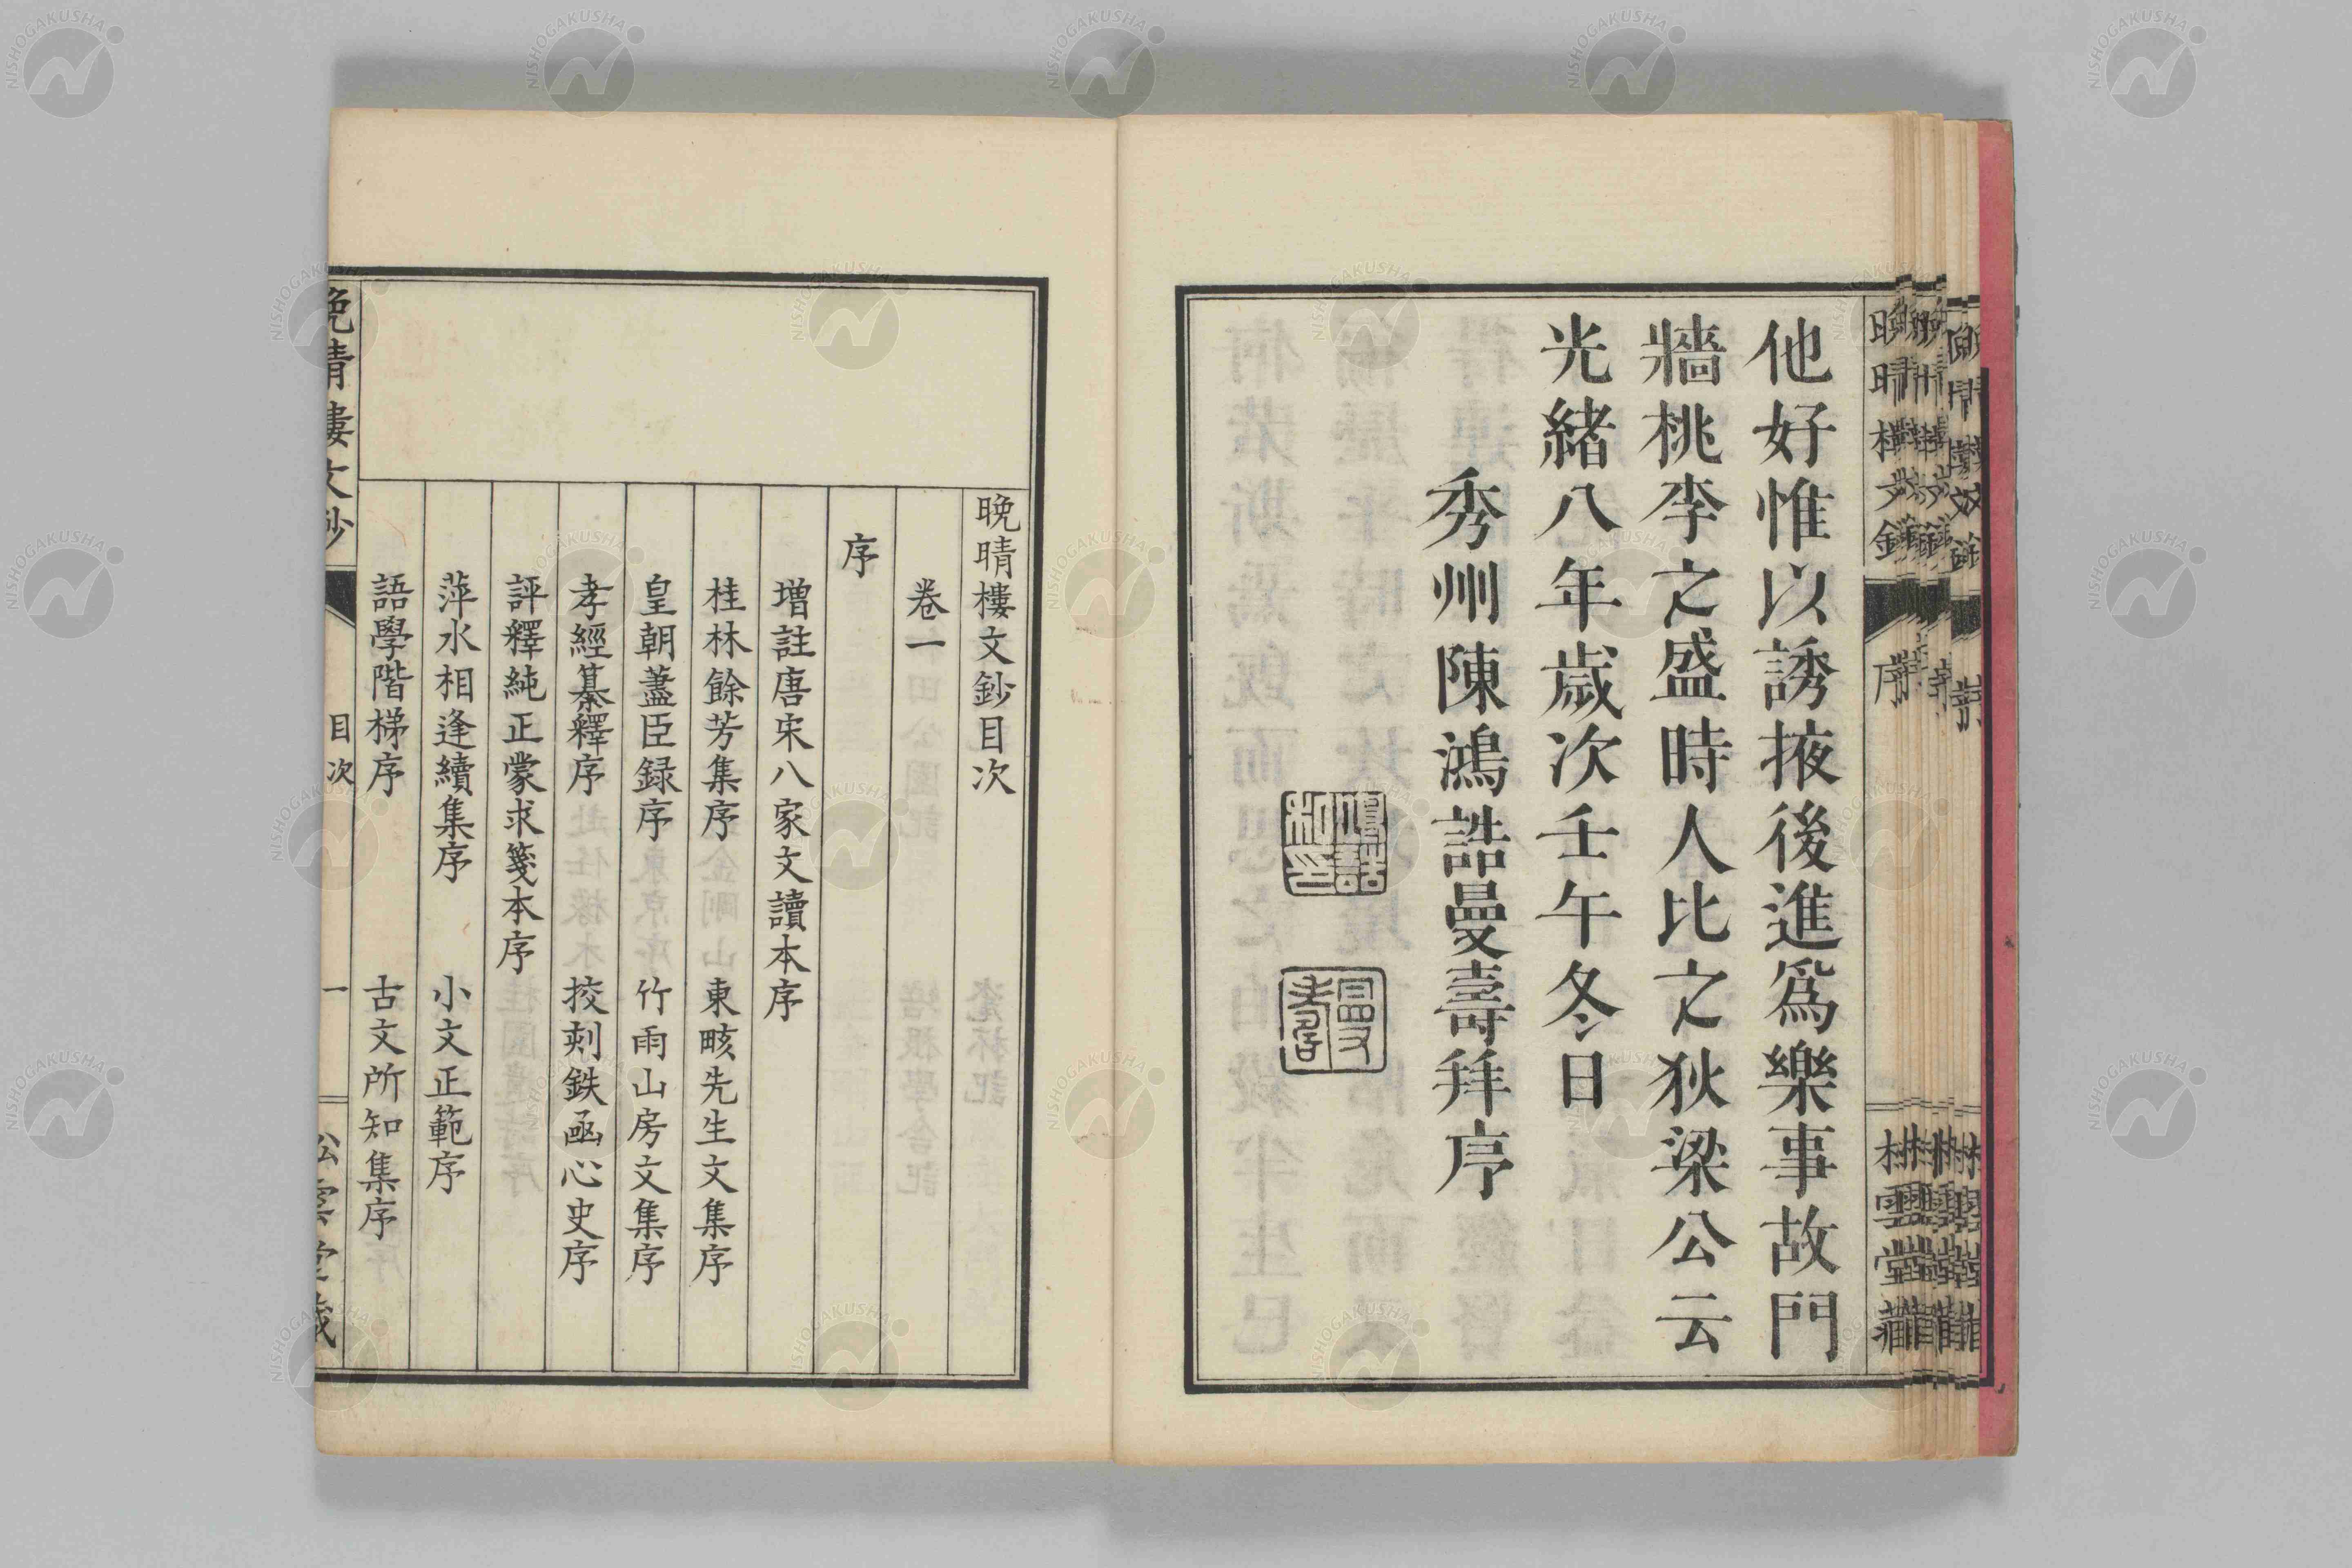 他好惟以誘掖後進爲樂事故門
牆桃李之盛時人比之狄梁公云
光緒八年歲次壬午冬日
秀州陳鴻誥曼壽拜序
晚晴樓文鈔目次
卷一
序
增註唐宋八家文讀本序
桂林餘芳集序 東畡先生文集序
皇朝藎臣録序 竹雨山房文集序
孝經纂釋序 挍刻鉄函心史序
評釋純正蒙求箋本序
萍水相逢續集序 小文正範序
語學階梯序 古文所知集序
晚晴樓文鈔 目次 一 松雲堂藏
NISHOGAKUSHA